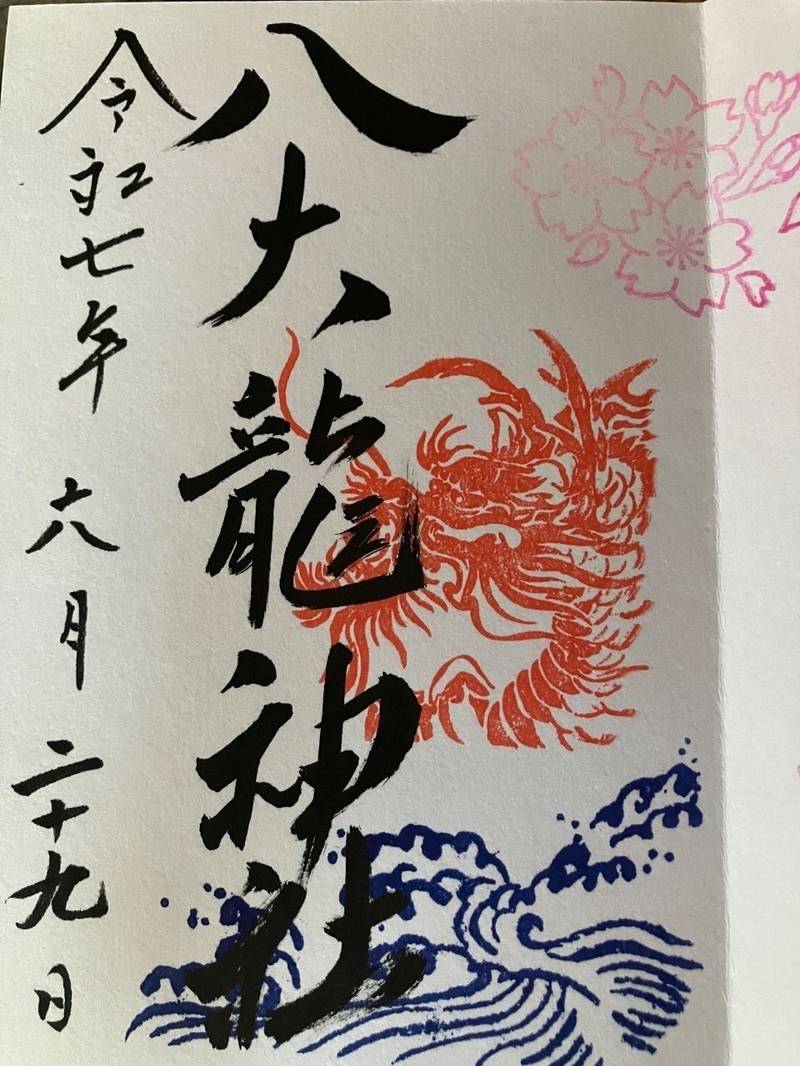 八大龍神社
令和七年 六月 二十九日